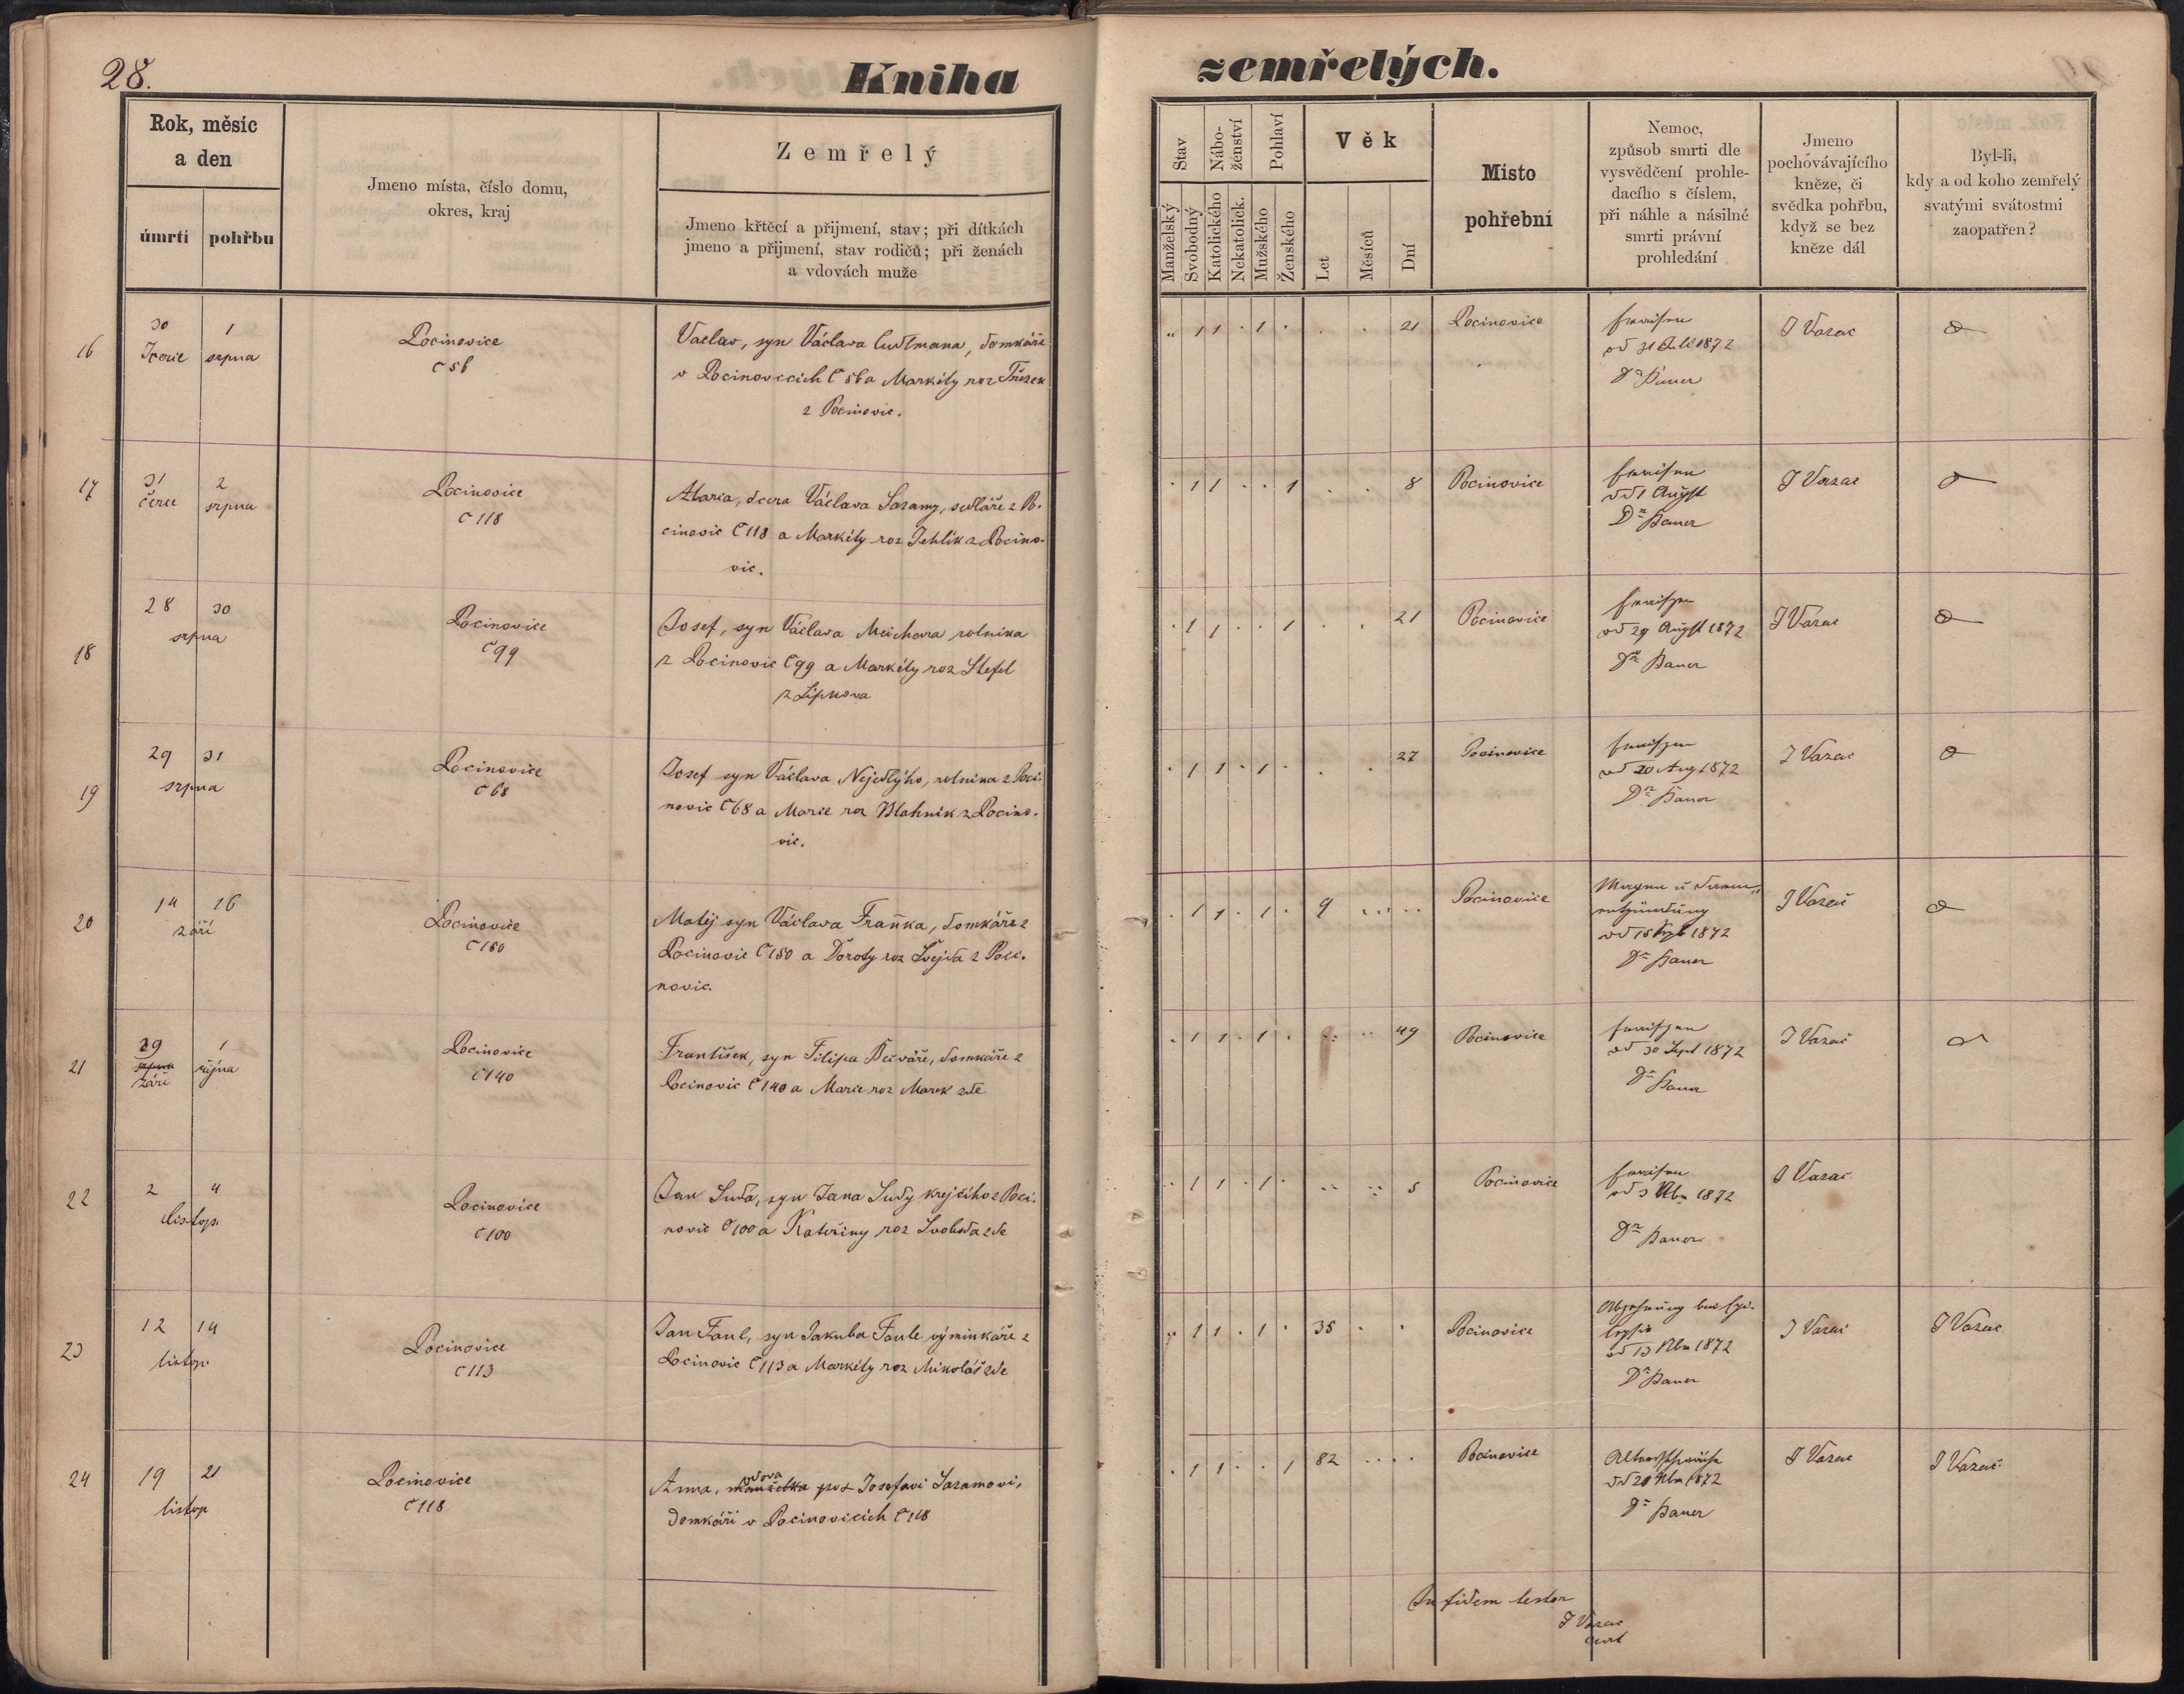 28.
Kniha
zemřelých.
Rok, měsíc
a den
úmrtí
pohřbu
Jmeno místa, číslo domu,
okres, kraj
Zemřelý
Jmeno křtěcí a přijmení, stav; při dítkách
jmeno a přijmení, stav rodičů; při ženách
a vdovách muže
Stav
Nábo-
ženství
Pohlaví
Věk
Manželský
Svobodný
Katolického
Nekatolick.
Mužského
Ženského
Let
Měsíců
Dní
Místo
pohřební
Nemoc,
způsob smrti dle
vysvědčení prohle-
dacího s číslem,
při náhle a násilné
smrti právní
prohledání
Jmeno
pochovávajícího
kněze, či
svědka pohřbu,
když se bez
kněze dál
Byl-li,
kdy a od koho zemřelý
svatými svátostmi
zaopatřen?
16
30 1
srpna
Pocinovice
č 56
Vaclav, syn Václava, domkáře
v Pocinovicích č 56 a Markéty roz
z Pocinovic.
1 1 . 1 . . . 21
Pocinovice
od 31 Juli 1872
Dr Bauer
J Vazac
17
31 2
červe srpna
Pocinovice
č 118
Maria, dcera Václava Sazamy, sedláře z Po-
cinovic č 118 a Markéty roz Jehlík z Pocino-
vic.
. 1 1 . . 1 . . 8
Pocinovice
od 1 August
Dr Bauer
J Vazac
18
28 30
srpna
Pocinovice
č 99
Josef, syn Václava, rolníka
z Pocinovic č 99 a Markéty roz Stefl
z Lipkova
. 1 1 . . 1 . . 21
Pocinovice
od 29 August 1872
Dr Bauer
J Vazac
19
29 31
srpna
Pocinovice
č 68
Josef syn Václava Nejedlýho, rolníka z Poci-
novic č 68 a Marie roz Blahnik z Pocino-
vic.
. 1 1 . 1 . . . 27
Pocinovice
od 30 Aug 1872
Dr Bauer
J Vazac
20
14 16
září
Pocinovice
č 150
Matěj syn Václava Fraňka, domkáře z
Pocinovic č 150 a Doroty roz Švejda z Poci-
novic.
. 1 1 . 1 . 9
Pocinovice
Magen u Darm-
entzündung
od 15 1872
Dr Bauer
J Vazač
21
29 1
srpna října
září
Pocinovice
č 140
František, syn Filipa Bečváře, domkáře z
Pocinovic č 140 a Marie roz Marek zde
. 1 1 . 1 . 49
Pocinovice
od 30 Sept 1872
Dr Bauer
J Vazač
22
2 4
listop.
Pocinovice
č 100
Jan Suda, syn Jana Sudy krejčího z Poci-
novic č 100 a Kateřiny roz Svoboda zde
1 1 . 1 . 5
Pocinovice
od 3 Nbr 1872
Dr Bauer
J Vazač
23
12 14
listop.
Pocinovice
č 113
Jan Faul, syn Jakuba Faule výminkáře z
Pocinovic č 113 a Markéty roz Mikoláš zde
1 1 . 1 . 35 . .
Pocinovice
Abzehrung
od 13 Nbr 1872
Dr Bauer
J Vazač
J Vazac
24
19 21
listop
Pocinovice
č 118
vdova
Anna, manželka po Josefovi Sazamovi,
domkáři v Pocinovicích č 118
. 1 1 . . 1 82
Pocinovice
Altersschwäche
od 20 Nbr 1872
Dr Bauer
J Vazac
J Vazač
In fidem testor
J Vazac